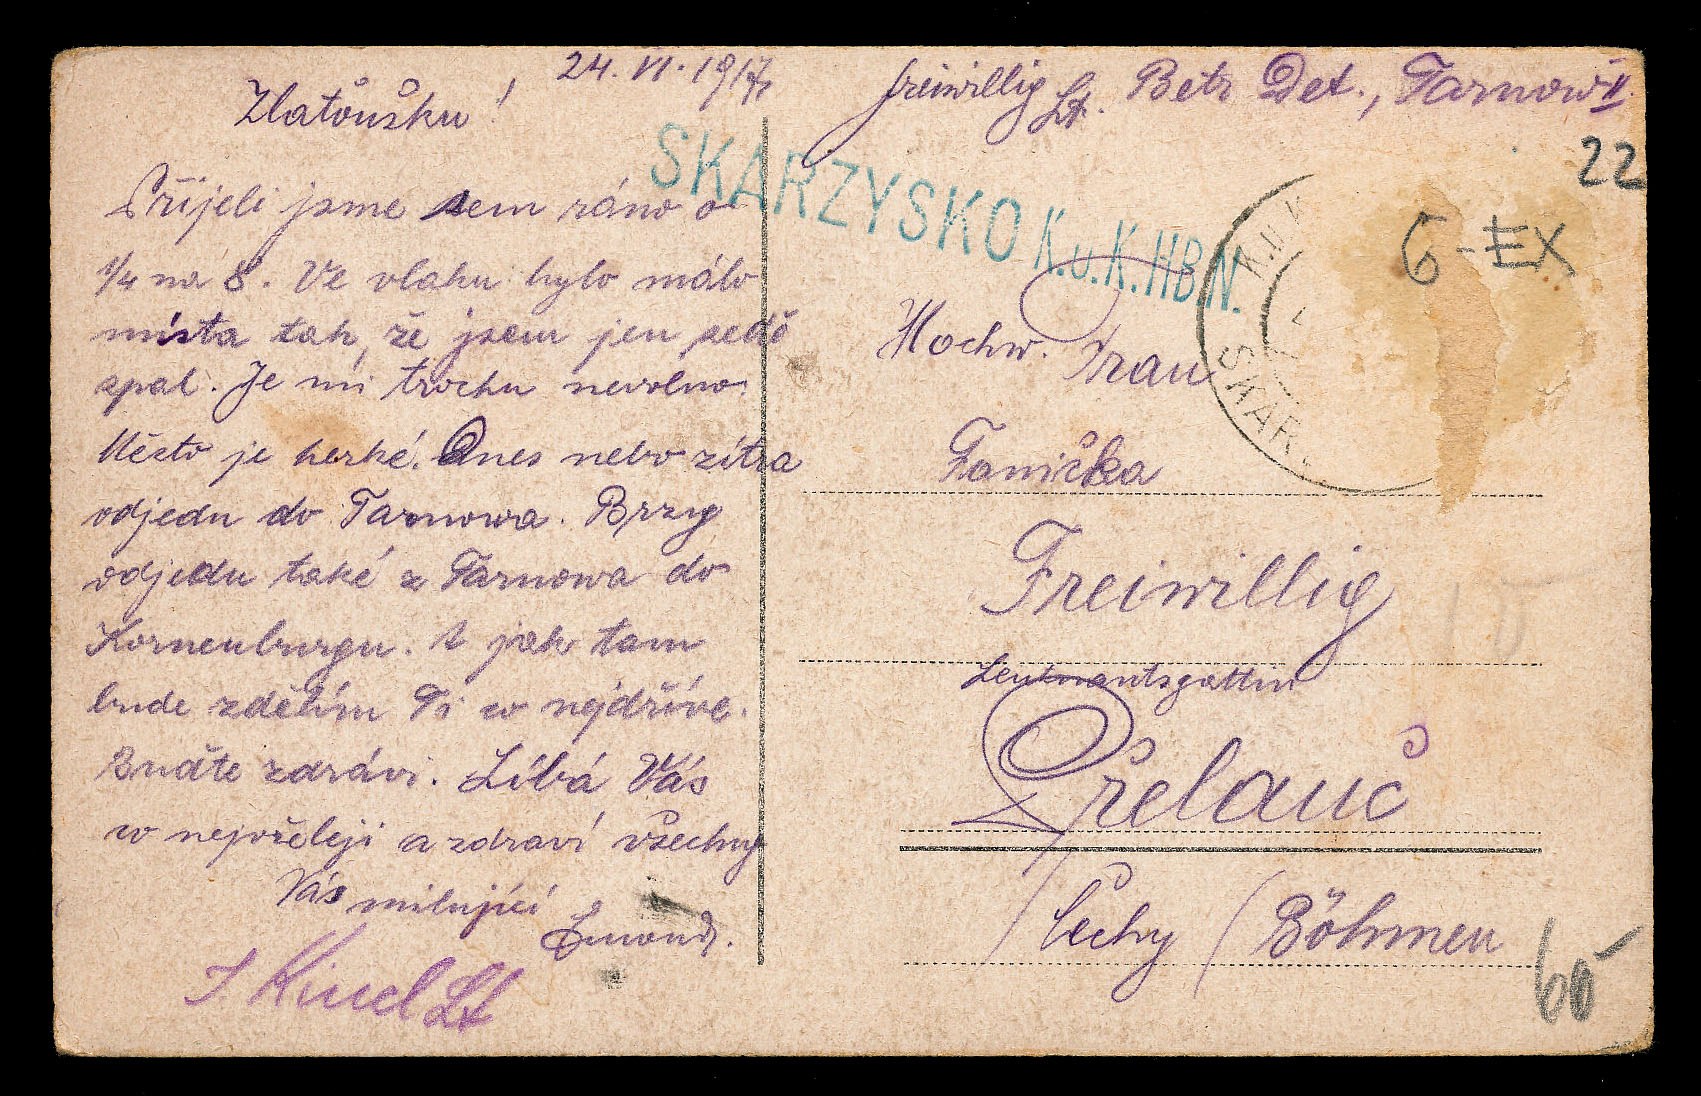 24. VI. 1917
Zlatoušku!
Přijeli jsme sem ráno o
1/4 na 8. Ve vlaku bylo málo
místa tak, že jsem jen sedě
spal. Je mi trochu nevolno.
Město je herké. Dnes nebo zítra
odjedu do Tarnowa. Brzy
odjedu také z Tarnowa do
Korneuburgu. A jak tam
bude zdělím Ti co nejdříve.
Buďte zdrávi. Líbá Vás
co nejvřeleji a zdraví všechny
Vás milující
freiwillig Lt. Betr Det., Tarnow II.
SKARZYSKO K.u.K.HBN.
22
6-EX
K.U.K
SKAR
Hochw. Frau
Fanička
Freiwillig
Leutnantsgattin
Přelauč
Čechy (Böhmen
60